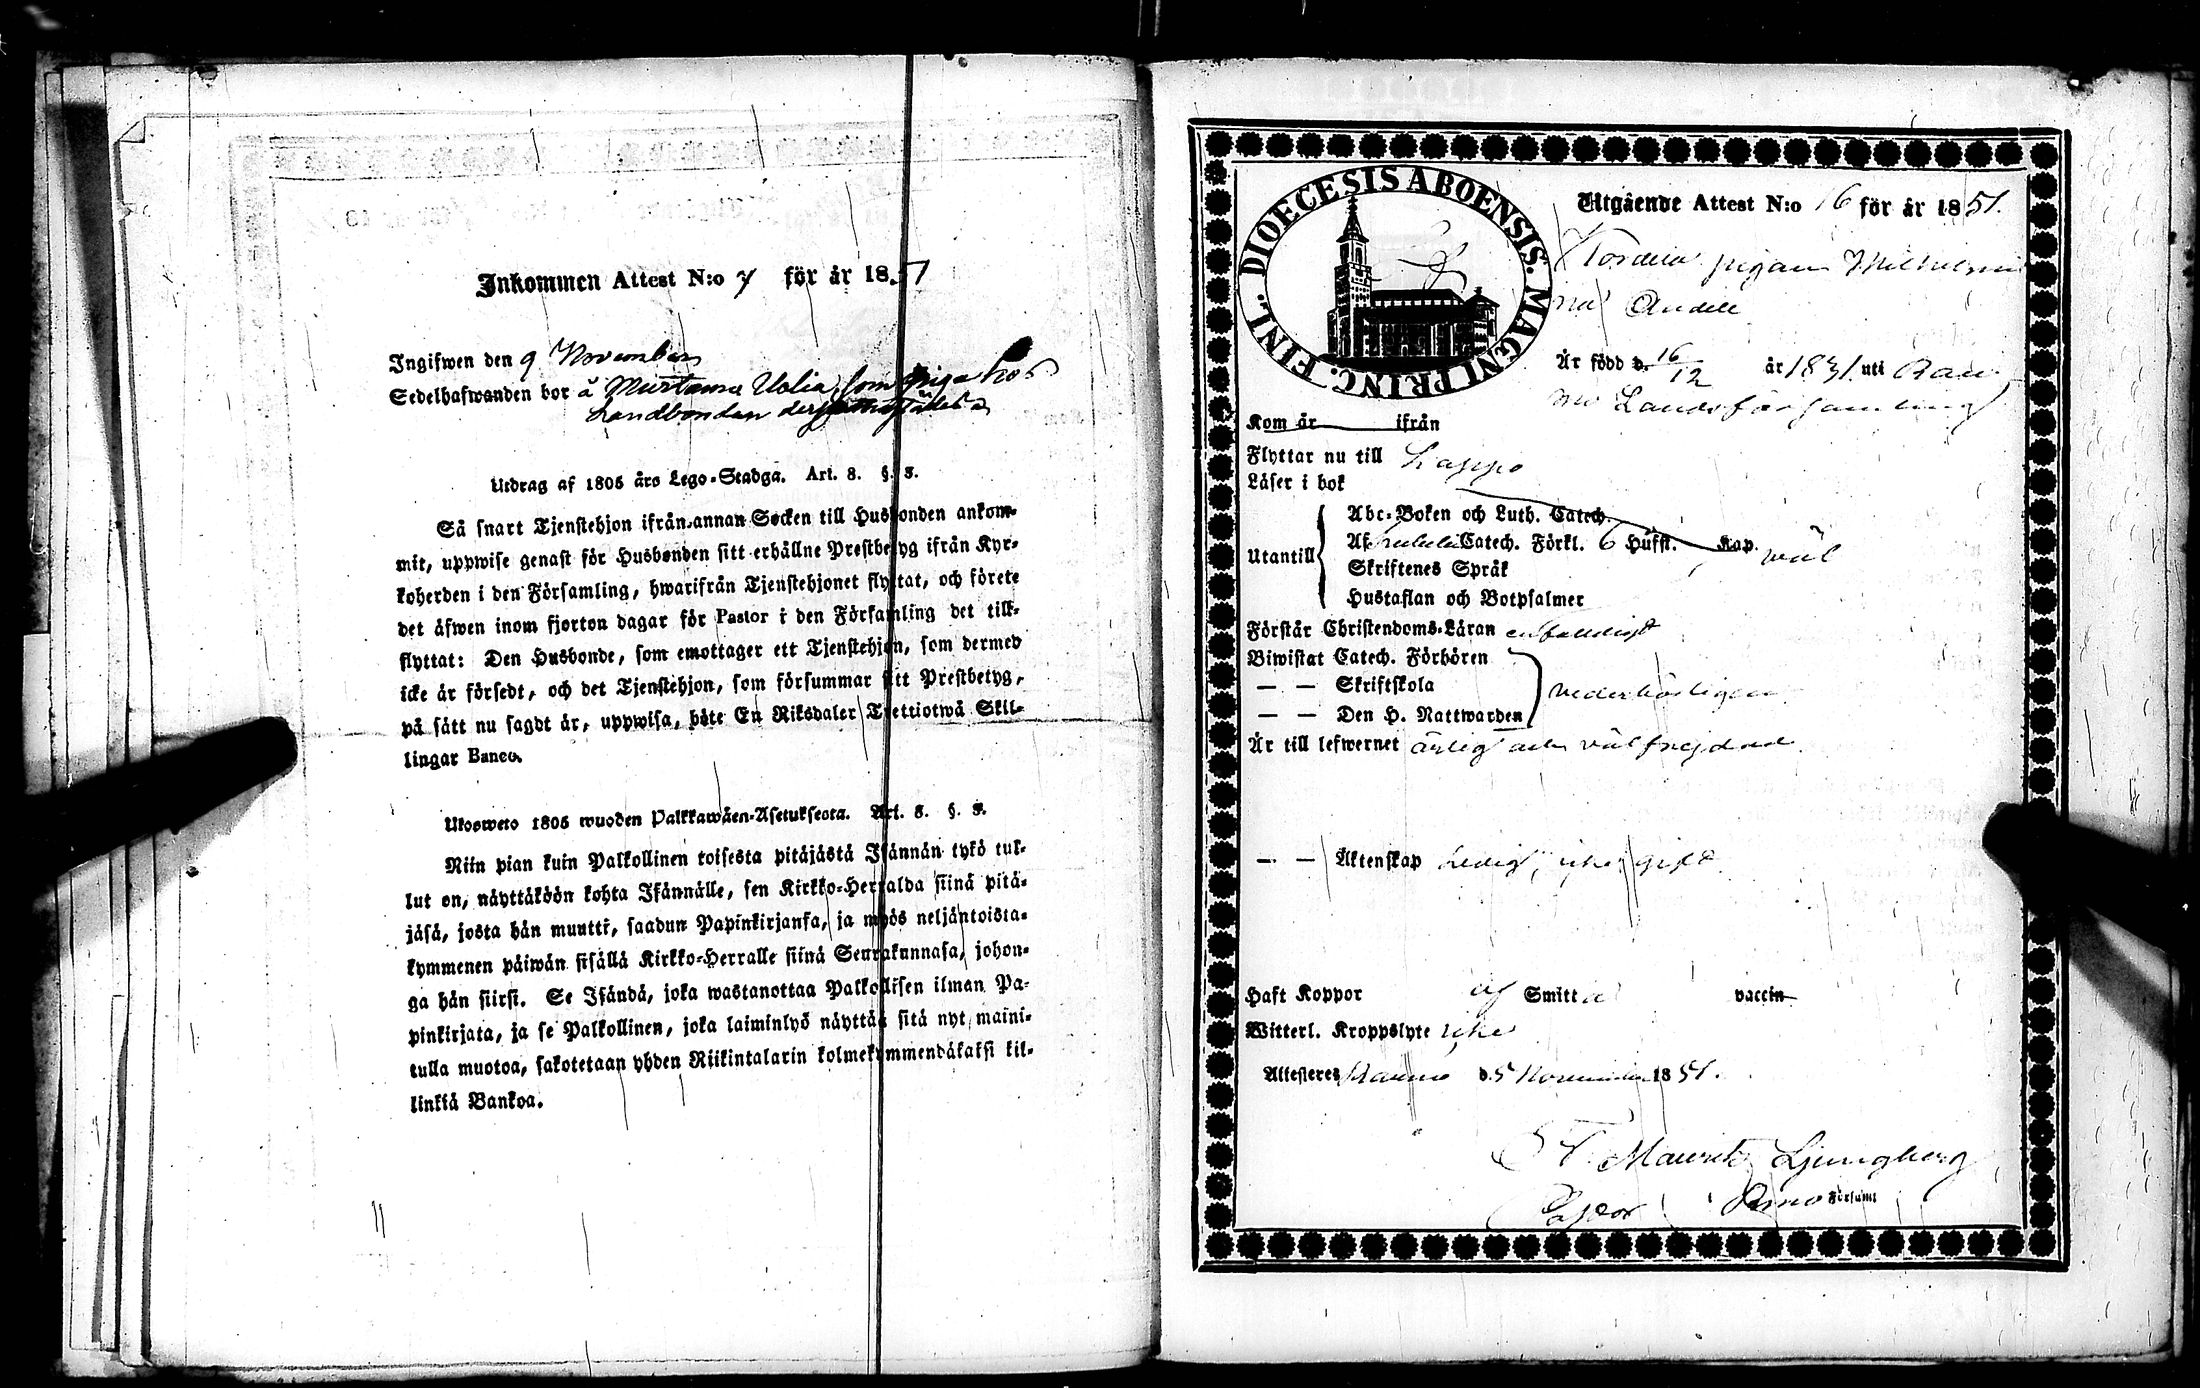 Inkommen Attest N:o 7 för år 1851
Ingifwen den 9 November
Sedelhafwanden bor å Murtama Uolia som piga hos
Landbonden derstädes
Utdrag af 1805 års Lego-Stadga. Art. 8. §. 3.
Så snart Tjenstehjon ifrån annan Socken till Husbonden ankom-
mit, uppwise genast för Husbonden sitt erhållne Prestbetyg ifrån Kyr-
koherden i den Församling, hwarifrån Tjenstehjonet flyttat, och förete
det äfwen inom fjorton dagar för Pastor i den Församling det till-
flyttat: Den Husbonde, som emottager ett Tjenstehjon, som dermed
icke är försedt, och det Tjenstehjon, som försummar sitt Prestbetyg,
på sätt nu sagdt är, uppwisa, böte En Riksdaler Trettiotwå Skil-
lingar Banco.
Ulosweto 1805 wuoden Palkkawäen-Asetuksesta. Art. 8. §. 3.
Niin pian kuin Palkollinen toisesta pitäjästä Isännän tykö tul-
lut on, näyttäköön kohta Isännälle, sen Kirkko-Herralda siinä pitä-
jäsä, josta hän muutti, saadun Papinkirjansa, ja myös neljäntoista-
kymmenen päiwän sisällä Kirkko-Herralle siinä Seurakunnasa, johon-
ga hän siirsi. Se Isändä, joka wastanottaa Palkollisen ilman Pa-
pinkirjata, ja se Palkollinen, joka laiminlyö näyttää sitä nyt maini-
tulla muotoa, sakotetaan yhden Riikintalarin kolmekymmendäkaksi kil-
linkiä Bankoa.
DIOECESIS ABOENSIS. MAGNI PRINC. FINL.
Utgående Attest N:o 16 för år 1851.
pigan Wilhelmi
na
Är född d. 16/12 år 1831. uti Rau-
mo Landsförsamling
Kom år ifrån
Flyttar nu till Lappo
Läser i bok
Utantill
Abc-Boken och Luth. Catech.
Af Catech. Förkl. 6 Hufst. Kap. väl
Skriftenes Språk
Hustaflan och Botpsalmer
Förstår Christendoms-Läran enfaldigt
Biwistat Catech. Förhören
— — Skriftskola
— — Den H. Nattwarden
vederbörligen
Är till lefwernet ärlig och välfrejdad.
— — Äktenskap Ledig, icke gift
Haft Koppor af Smitta vaccin
Witterl. Kroppslyte icke
Attesteres Raumo d. 5 November 1851.
Maurits Ljungberg
Pastor i Raumo Församl